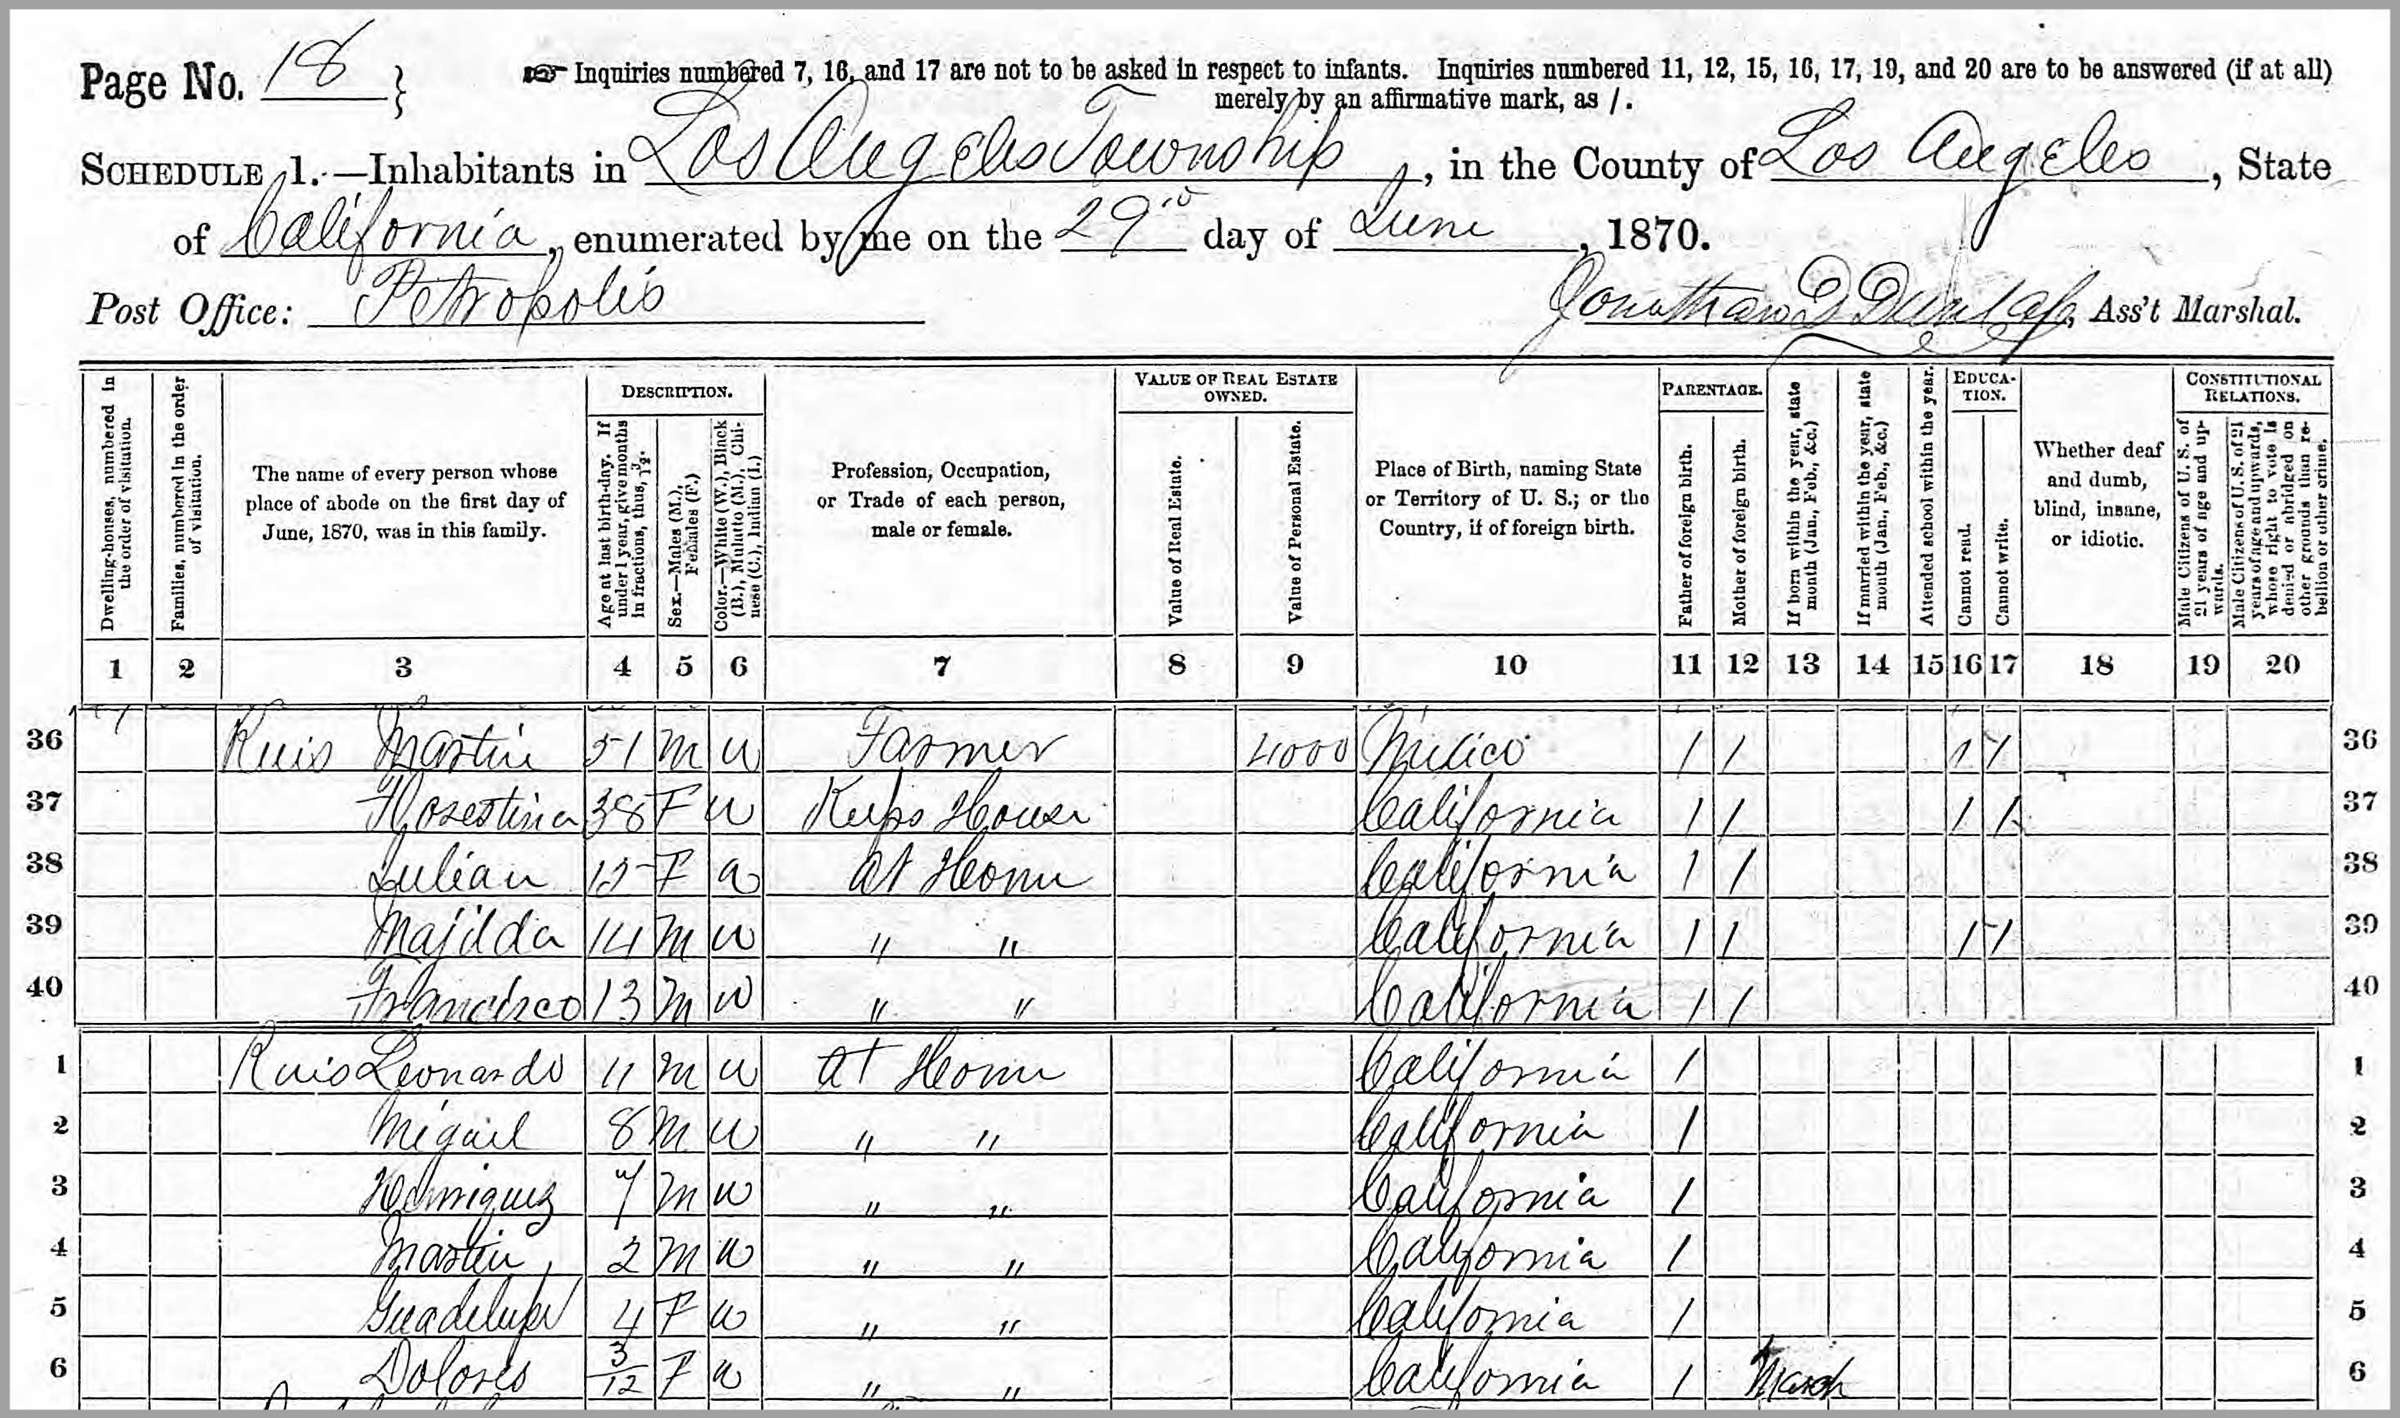 Page No. 18 } ☞ Inquiries numbered 7, 16, and 17 are not to be asked in respect to infants. Inquiries numbered 11, 12, 15, 16, 17, 19, and 20 are to be answered (if at all)
merely by an affirmative mark, as /.
SCHEDULE 1.—Inhabitants in Los Angeles Township, in the County of Los Angeles, State
of California, enumerated by me on the 29th day of June, 1870.
Post Office: Petropolis
Jonathan D Dunlap, Ass't Marshal.
Dwelling-houses, numbered in the order of visitation.
Families, numbered in the order of visitation.
The name of every person whose place of abode on the first day of June, 1870, was in this family.
DESCRIPTION.
Age at last birth-day. If under 1 year, give months in fractions, thus, 3/12.
Sex.—Males (M.), Females (F.)
Color.—White (W.), Black (B.), Mulatto (M.), Chinese (C.), Indian (I.)
Profession, Occupation, or Trade of each person, male or female.
VALUE OF REAL ESTATE OWNED.
Value of Real Estate.
Value of Personal Estate.
Place of Birth, naming State or Territory of U. S.; or the Country, if of foreign birth.
PARENTAGE.
Father of foreign birth.
Mother of foreign birth.
If born within the year, state month (Jan., Feb., &c.)
If married within the year, state month (Jan., Feb., &c.)
Attended school within the year.
EDUCATION.
Cannot read.
Cannot write.
Whether deaf and dumb, blind, insane, or idiotic.
CONSTITUTIONAL RELATIONS.
Male Citizens of U. S. of 21 years of age and upwards.
Male Citizens of U. S. of 21 years of age and upwards, whose right to vote is denied or abridged on other grounds than rebellion or other crime.
1 2 3 4 5 6 7 8 9 10 11 12 13 14 15 16 17 18 19 20
36 Ruis Martin 51 M W Farmer 4000 Mexico / / / / 36
37 38 F W Keeps House California / / / / 37
38 Julian 15 F W At Home California / / 38
39 Majilda 14 M W " " California / / / / 39
40 Francisco 13 M W " " California / / 40
1 Ruis Leonardo 11 M W At Home California / 1
2 Migail 8 M W " " California / 2
3 Henriquez 7 M W " " California / 3
4 Martin 2 M W " " California / 4
5 Guadelupe 4 F W " " California / 5
6 Dolores 3/12 F W " " California / March 6